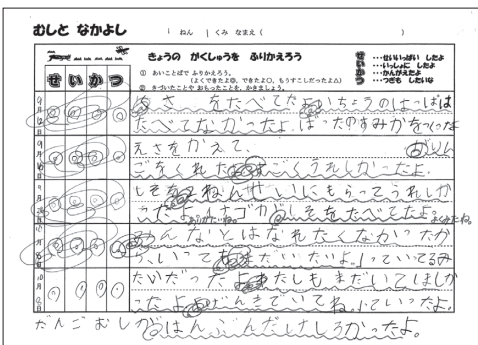 むしと なかよし
1 ねん 1 くみ なまえ( )
せいかつ
きょうの がくしゅうを ふりかえろう
① あいことばで ふりかえろう。
(よくできたよ◎、できたよ○、もうすこしだったよ△)
② きづいたことや おもったことを、かきましょう。
せ…せいいっぱい したよ
い…いっしょに したよ
か…かんがえたよ
つ…つぎも したいな
さ をたべてたよ ちょうのはっぱは
たべてなかったよ。ばったのすみかをつくったよ
えさをかえて、 りん
ごをくれた ごくうれしかったよ。
しそを ねんせいにもらってうれしか
ったよ ゴが しそをたべてたよ。
んなとはなれたくなかったか
まだいたいよ。」っていってるみ
たいだったよ たしもまだいてほしか
ったよ げんきでいてね。」っていったよ。
だんごむしが はんぶんだけしろかったよ。